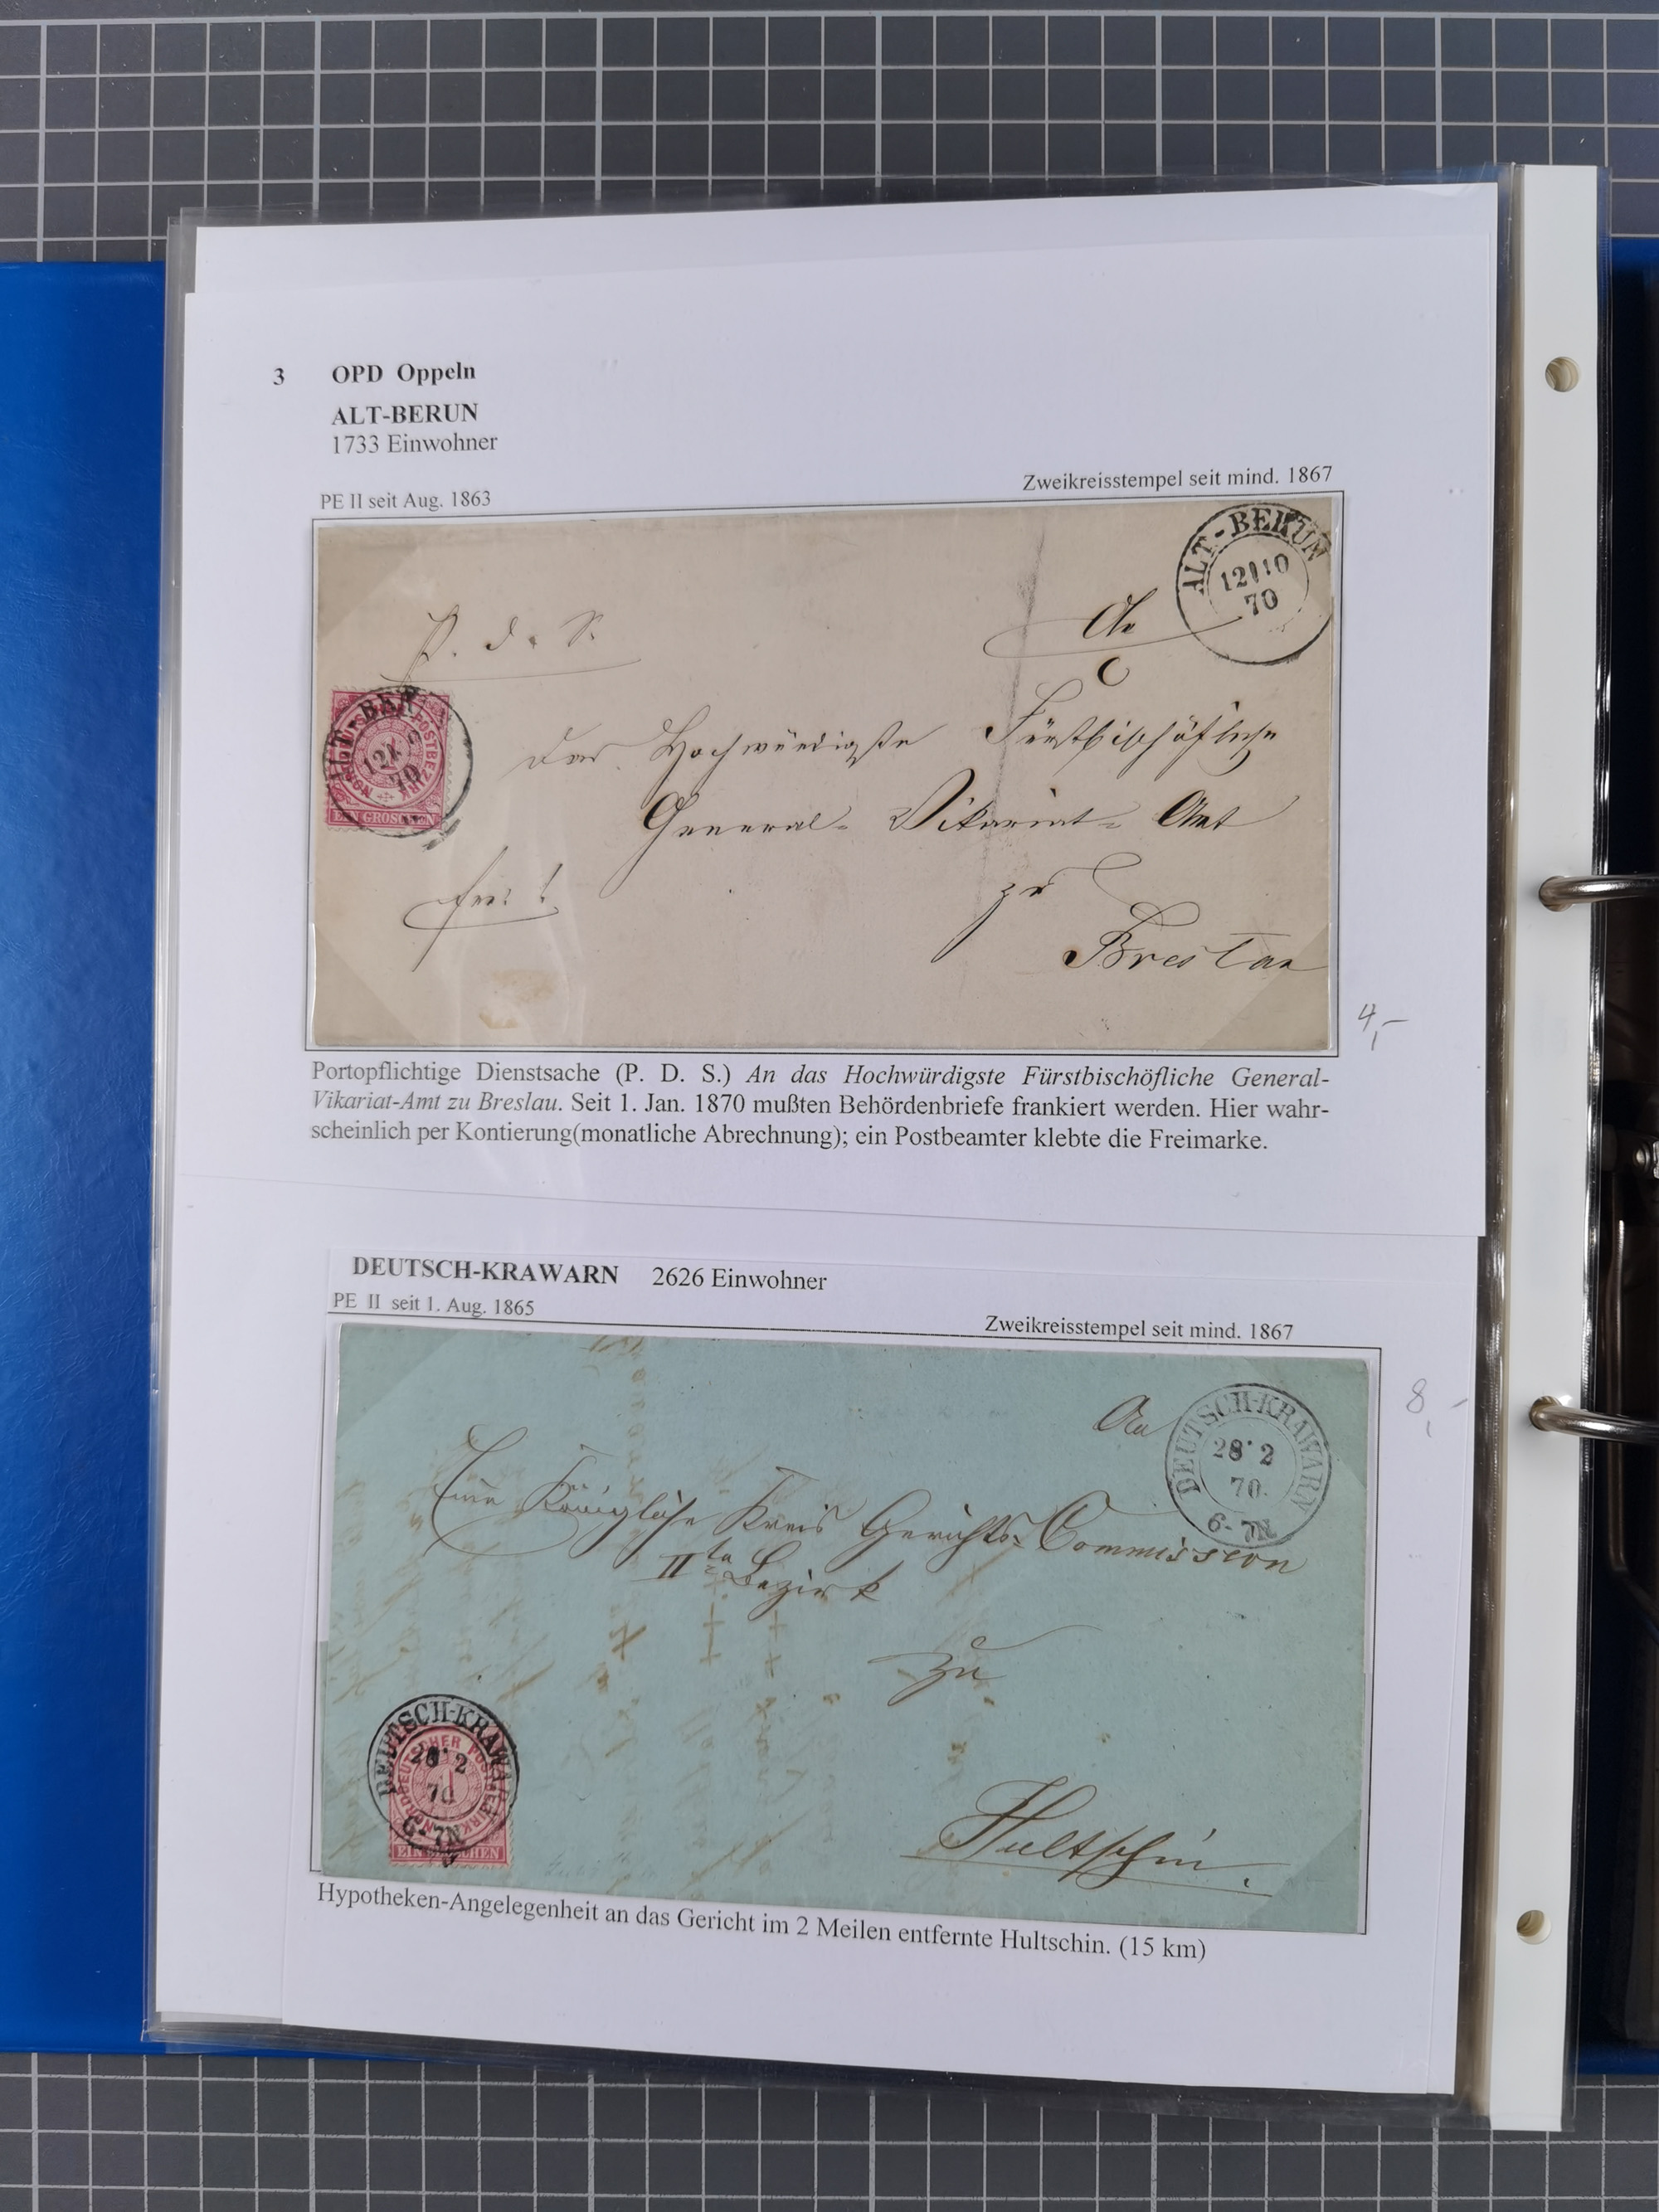 3 OPD Oppeln
ALT-BERUN
1733 Einwohner
PE II seit Aug. 1863
Zweikreisstempel seit mind. 1867
ALT-BERUN
12 10
70
P. d. S.
An
das Hochwürdigste Fürstbischöfliche
General- Vikariat- Amt
zu
Breslau
frei!
NORDDEUTSCHER POSTBEZIRK
EIN GROSCHEN
4,-
Portopflichtige Dienstsache (P. D. S.) An das Hochwürdigste Fürstbischöfliche General-
Vikariat-Amt zu Breslau. Seit 1. Jan. 1870 mußten Behördenbriefe frankiert werden. Hier wahr-
scheinlich per Kontierung(monatliche Abrechnung); ein Postbeamter klebte die Freimarke.
DEUTSCH-KRAWARN 2626 Einwohner
PE II seit 1. Aug. 1865
Zweikreisstempel seit mind. 1867
An
DEUTSCH-KRAWARN
28 2
70.
6-7N
Eine Königliche Kreis Gerichts-Commission
IIten Bezirk
zu
Hultschin.
DEUTSCH-KRAWARN
28 2
70
6-7N
NORDDEUTSCHER POSTBEZIRK
1
EIN GROSCHEN
8,-
Hypotheken-Angelegenheit an das Gericht im 2 Meilen entfernte Hultschin. (15 km)